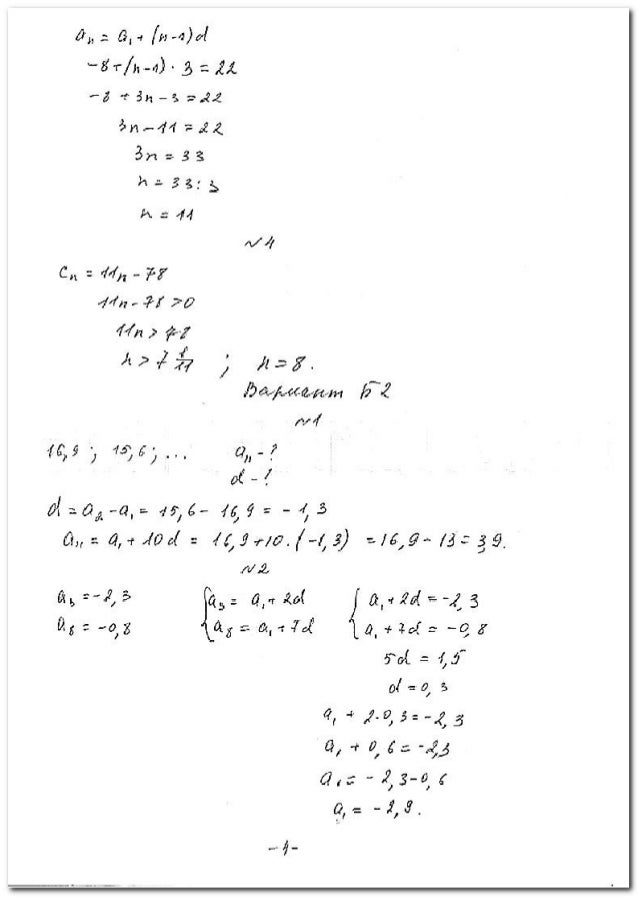 aₙ = a₁ + (n-1)d
-8+(n-1)·3=22
-8+3n-3=22
3n-11=22
3n=33
n=33:3
n=11
№4
Cₙ = 11n-78
11n-78>0
11n>78
n>7 1/11 ; n=8.
Вариант Б2
№1
16,9; 15,6; ... a₁₁-?
d-?
d=a₂-a₁=15,6-16,9=-1,3
a₁₁=a₁+10d=16,9+10·(-1,3)=16,9-13=3,9.
№2
a₃=-2,3 { a₃=a₁+2d { a₁+2d=-2,3
a₈=-0,8 { a₈=a₁+7d { a₁+7d=-0,8
5d=1,5
d=0,3
a₁+2·0,3=-2,3
a₁+0,6=-2,3
a₁=-2,3-0,6
a₁=-2,9.
-4-